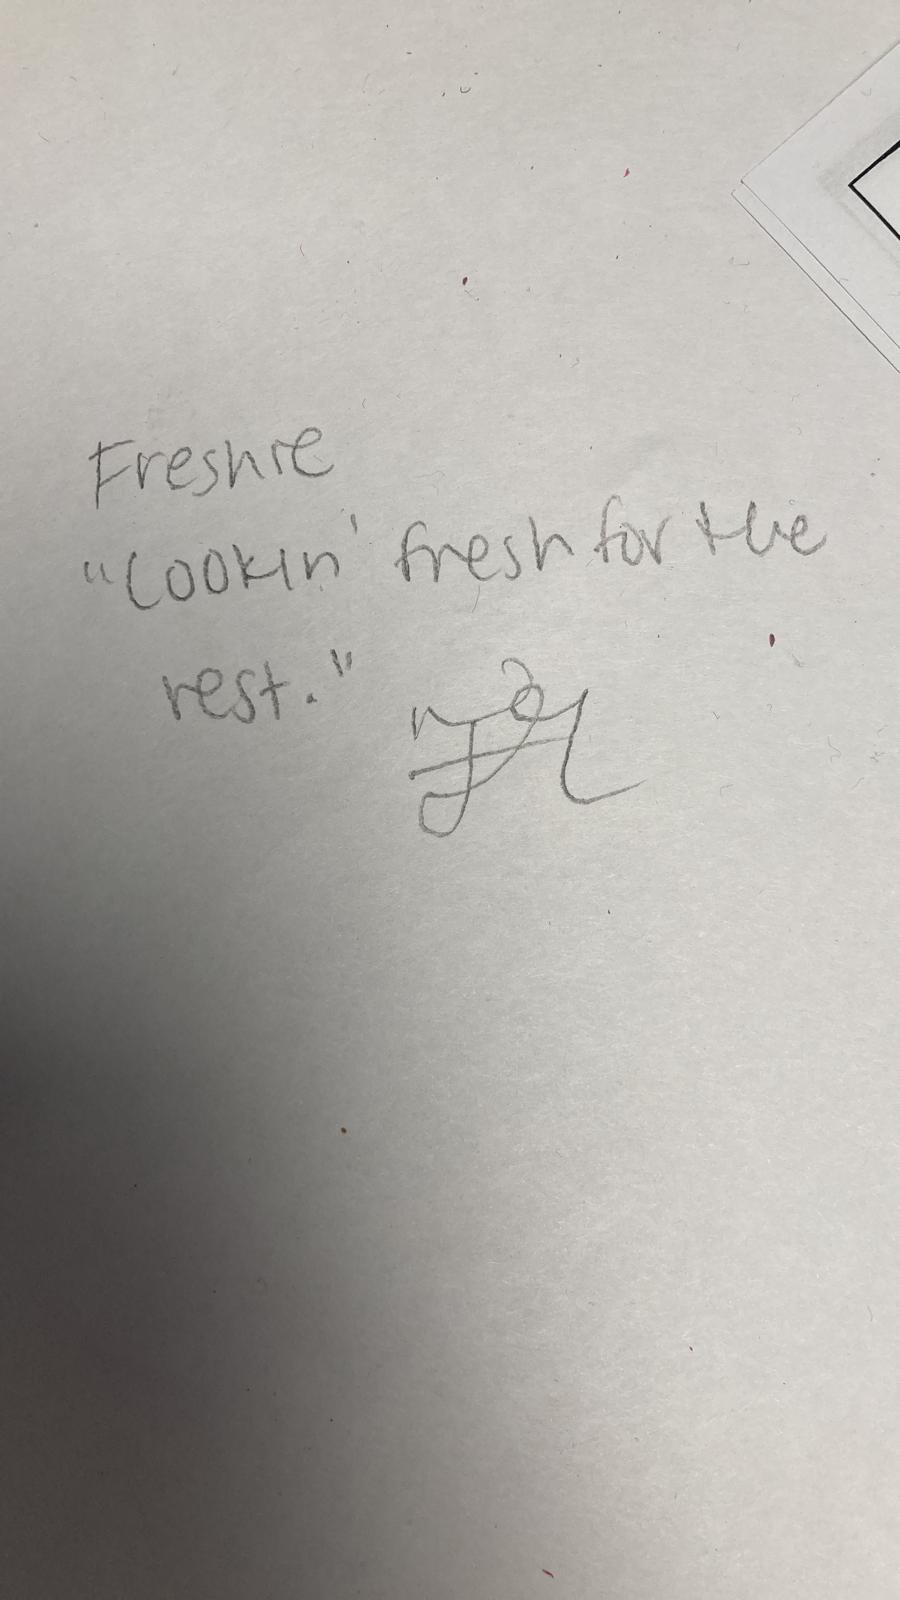 Freshie
"Cookin' fresh for the
rest."